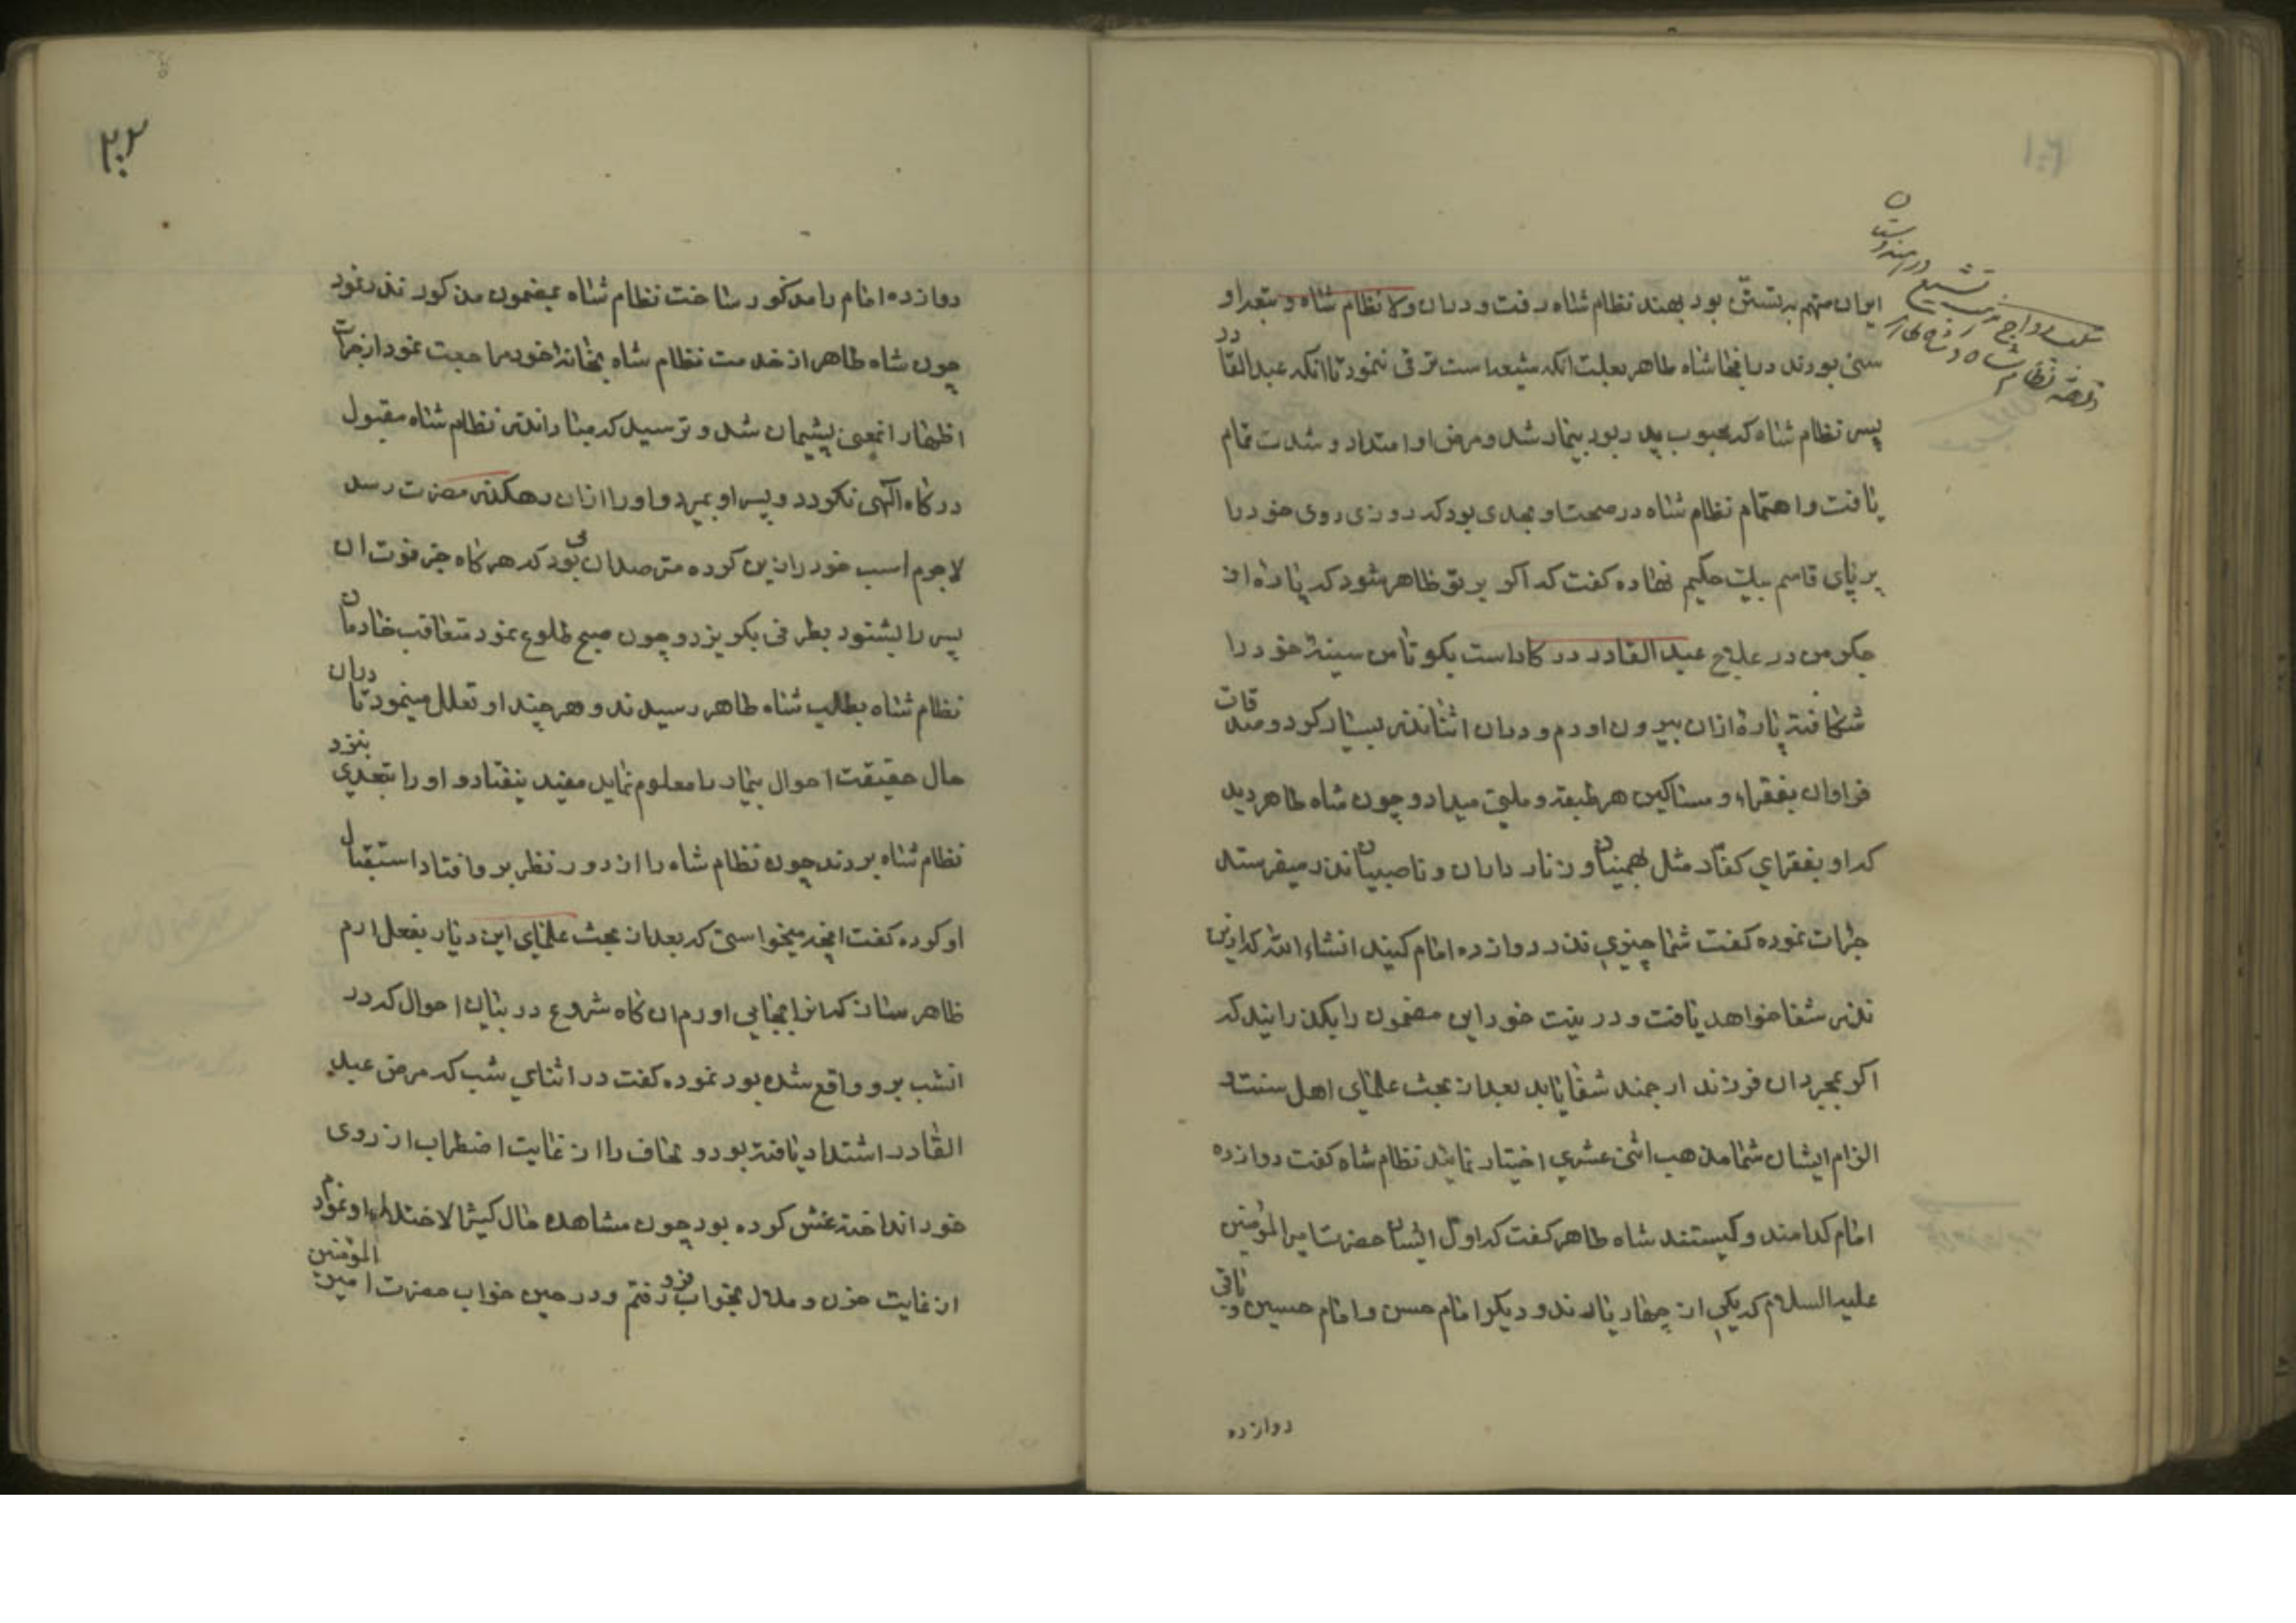 ایران متهم به تسنّن بود بهند نظام شاه رفت و دران ولا نظام شاه و تبعه او
سنی بودند در اینجا شاه طاهر بعلت انکه شیعه است ترقی ننمود تا انکه عبدالقادر
پسر نظام شاه که محبوب پدر بود بیمار شد و مرض او امتداد و شدت تمام
یافت و اهتمام نظام شاه در صحت او بحدی بود که روزی روی خود را
بر پای قاسم بیک حکیم نهاده کفت که اکر بر تو ظاهر شود که پاره از
جکر من در علاج عبد القادر در کار است بکو تا من سینهٔ خود را
شکافته پارهٔ ازان بیرون اورم و دران اثنا نذر بسیار کرد و صدقات
فراوان بفقراء و مساکین هر طبقه و ملتی میداد و چون شاه طاهر دید
که او بفقرای کفار مثل بهمنیان و زنار داران و ناصبیان نذر میفرستد
جرات نموده کفت شما چیزی نذر دوازده امام کنید انشاء الله که ازین
نذر شفا خواهد یافت و در نیت خود این مضمون را بکذرانید که
اکر بمجرد ان فرزند ارجمند شفا یابد بعد از بحث علمای اهل سنت و
الزام ایشان شما مذهب اثنی عشری اختیار نمایند نظام شاه کفت دوازده
امام کدامند و کیستند شاه طاهر کفت که اول ایشان حضرت امیر المؤمنین
علیه السلام که یکی از چهار یارند و دیکر امام حسن و امام حسین و باقی
دوازده
۲۰۲
دوازده امام را مذکور ساخت نظام شاه بمضمون مذکور نذر نمود
چون شاه طاهر از خدمت نظام شاه بخانهٔ خود مراجعت نمود از جرات
اظهار انمعنی پشیمان شد و ترسید که مبادا نذر نظام شاه مقبول
درکاه الهی نکردد و پسر او بمیرد و او را ازان رهکذر مضرت رسد
لاجرم اسب خود را زین کرده مترصد ان می بود که هرکاه خبر فوت ان
پسر را بشنود بطرفی بکریزد و چون صبح طلوع نمود متعاقب خادمان
نظام شاه بطلب شاه طاهر رسیدند و هر چند او تعلل مینمود تا دران
حال حقیقت احوال بیمار را معلوم نماید مفید نیفتاد و او را بتعدی بنزد
نظام شاه بردند چون نظام شاه را از دور نظر بر و افتاد استقبال
او کرده کفت انچه میخواستی که بعد از بحث علمای این دیار بفعل ارم
ظاهر ساز که انرا بجای اورم ان کاه شروع در بیان احوال که در
انشب بر و واقع شده بود نموده کفت در اثنای شب که مرض عبد
القادر اشتداد یافته بود و لحاف را از غایت اضطراب از روی
خود انداخته غش کرده بود چون مشاهده حال کثیر الاختلال او نمودم
از غایت حزن و ملال بخواب فرو رفتم و در حین خواب حضرت امیر المؤمنین